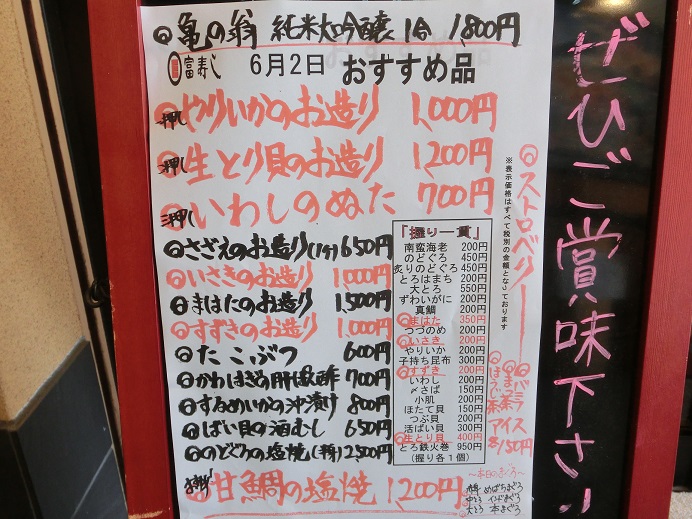 亀の翁 純米大吟醸 1合 1,800円
富寿し 6月2日 おすすめ品
一押し やりいかのお造り 1,000円
二押し 生とり貝のお造り 1,200円
三押し いわしのぬた 700円
さざえのお造り(1ヶ) 650円
いさきのお造り 1,000円
まはたのお造り 1,500円
すずきのお造り 1,000円
たこぶつ 600円
かわはぎの肝ポン酢 700円
するめいかの沖漬け 800円
ばい貝の酒むし 650円
のどぐろの塩焼(1尾) 2,500円
甘鯛の塩焼 1,200円
『握り一貫』
南蛮海老 200円
のどぐろ 450円
炙りのどぐろ 450円
とろはまち 200円
大とろ 550円
ずわいがに 200円
真鯛 200円
生はた 350円
つづのめ 200円
いさき 200円
やりいか 200円
子持ち昆布 300円
すずき 200円
いわし 200円
〆さば 150円
小肌 200円
ほたて貝 150円
つぶ貝 200円
活ばい貝 300円
生とり貝 400円
とろ鉄火巻 950円
(握り各1個)
※表示価格はすべて税別の金額となっております
ストロベリー
バニラ
ほうじ茶
アイス
各150円
〜本日のまぐろ〜
めばちまぐろ
中とろ インドまぐろ
大とろ 本まぐろ
ぜひご賞味下さい